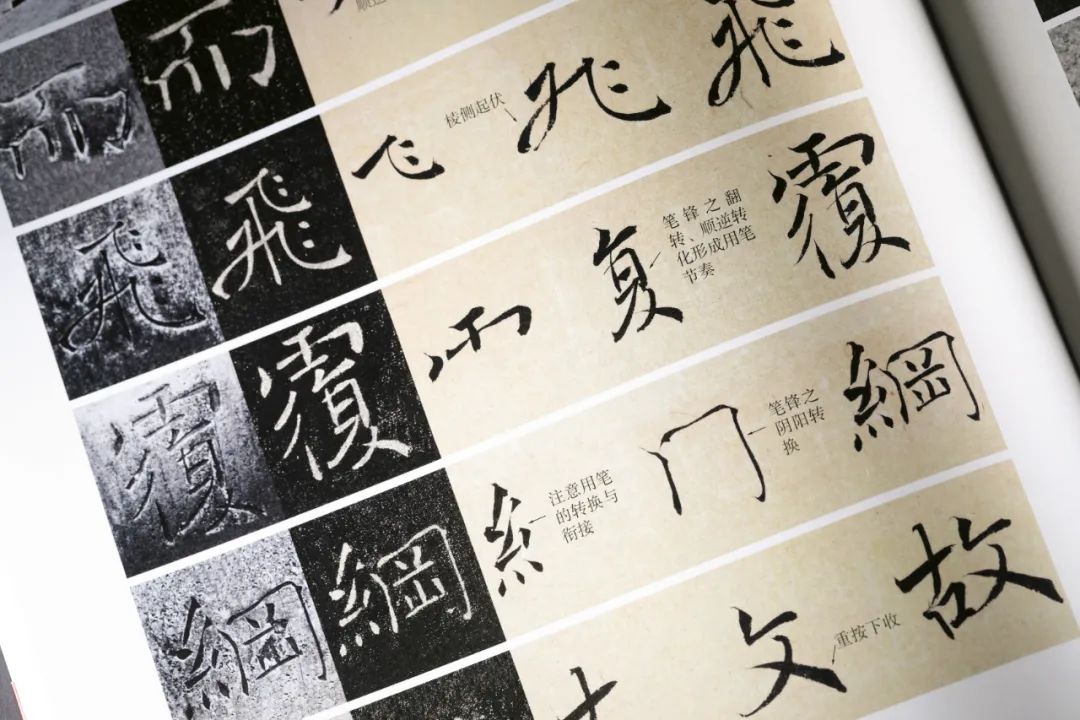 而
而
顺逆
飛
飛
飞
棱侧起伏
飛
覆
覆
复
笔锋之翻
转、顺逆转
化形成用笔
节奏
覆
綱
綱
糹
注意用笔
的转换与
衔接
门
笔锋之
阴阳转
换
綱
文
重按下收
故